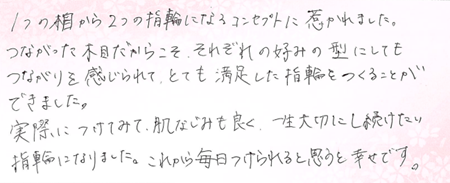 1つの相から2つの指輪になるコンセプトに惹かれました。
つながった木目だからこそ、それぞれの好みの型にしても
つながりを感じられて、とても満足した指輪をつくることが
できました。
実際につけてみて、肌なじみも良く、一生大切にし続けたい
指輪になりました。これから毎日つけられると思うと幸せです。